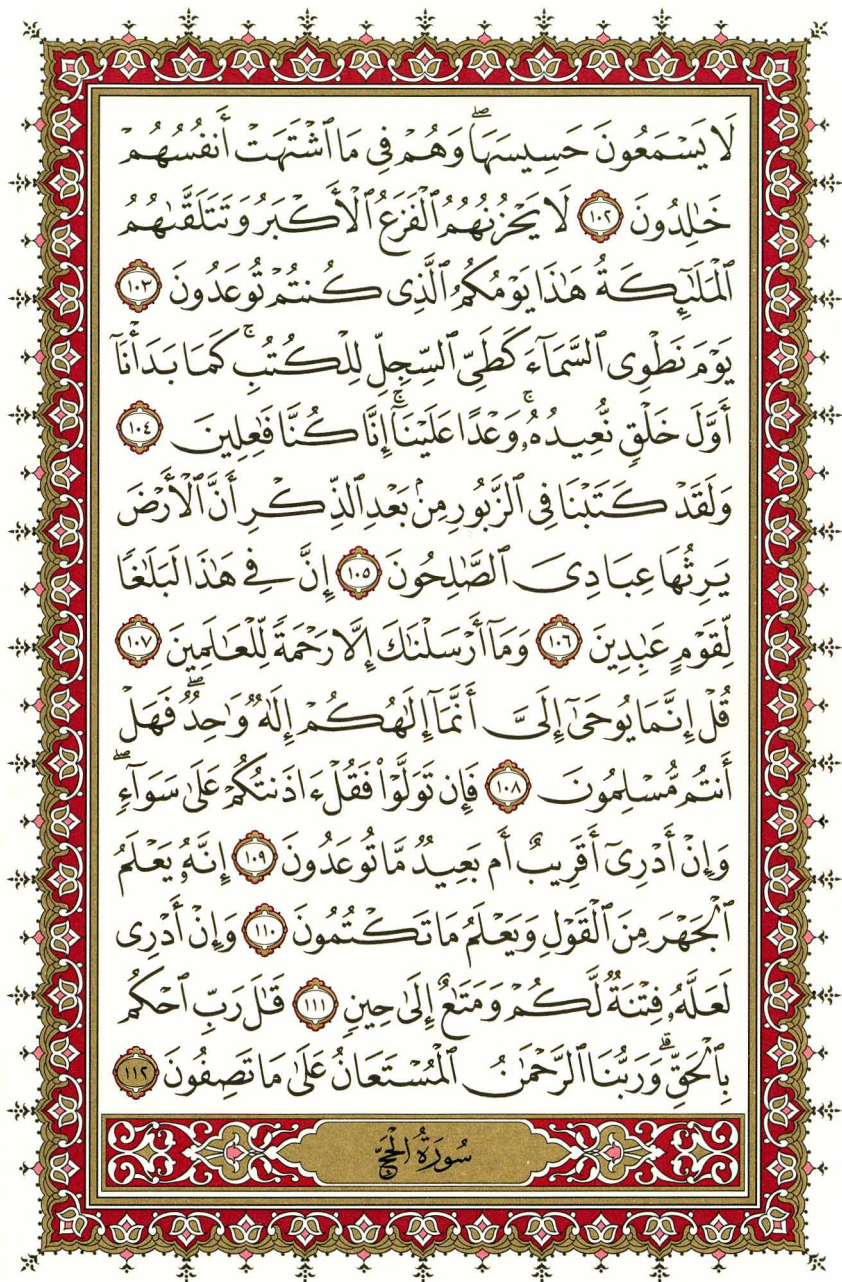 لَا يَسْمَعُونَ حَسِيسَهَا ۖ وَهُمْ فِى مَا ٱشْتَهَتْ أَنفُسُهُمْ
خَٰلِدُونَ ١٠٢ لَا يَحْزُنُهُمُ ٱلْفَزَعُ ٱلْأَكْبَرُ وَتَتَلَقَّىٰهُمُ
ٱلْمَلَٰٓئِكَةُ هَٰذَا يَوْمُكُمُ ٱلَّذِى كُنتُمْ تُوعَدُونَ ١٠٣
يَوْمَ نَطْوِى ٱلسَّمَآءَ كَطَىِّ ٱلسِّجِلِّ لِلْكُتُبِ ۚ كَمَا بَدَأْنَآ
أَوَّلَ خَلْقٍ نُّعِيدُهُۥ ۚ وَعْدًا عَلَيْنَآ ۚ إِنَّا كُنَّا فَٰعِلِينَ ١٠٤
وَلَقَدْ كَتَبْنَا فِى ٱلزَّبُورِ مِنۢ بَعْدِ ٱلذِّكْرِ أَنَّ ٱلْأَرْضَ
يَرِثُهَا عِبَادِىَ ٱلصَّٰلِحُونَ ١٠٥ إِنَّ فِى هَٰذَا لَبَلَٰغًا
لِّقَوْمٍ عَٰبِدِينَ ١٠٦ وَمَآ أَرْسَلْنَٰكَ إِلَّا رَحْمَةً لِّلْعَٰلَمِينَ ١٠٧
قُلْ إِنَّمَا يُوحَىٰٓ إِلَىَّ أَنَّمَآ إِلَٰهُكُمْ إِلَٰهٌ وَٰحِدٌ ۖ فَهَلْ
أَنتُم مُّسْلِمُونَ ١٠٨ فَإِن تَوَلَّوْا۟ فَقُلْ ءَاذَنتُكُمْ عَلَىٰ سَوَآءٍ ۖ
وَإِنْ أَدْرِىٓ أَقَرِيبٌ أَم بَعِيدٌ مَّا تُوعَدُونَ ١٠٩ إِنَّهُۥ يَعْلَمُ
ٱلْجَهْرَ مِنَ ٱلْقَوْلِ وَيَعْلَمُ مَا تَكْتُمُونَ ١١٠ وَإِنْ أَدْرِى
لَعَلَّهُۥ فِتْنَةٌ لَّكُمْ وَمَتَٰعٌ إِلَىٰ حِينٍ ١١١ قَٰلَ رَبِّ ٱحْكُم
بِٱلْحَقِّ ۗ وَرَبُّنَا ٱلرَّحْمَٰنُ ٱلْمُسْتَعَانُ عَلَىٰ مَا تَصِفُونَ ١١٢
سُورَةُ الْحَجِّ